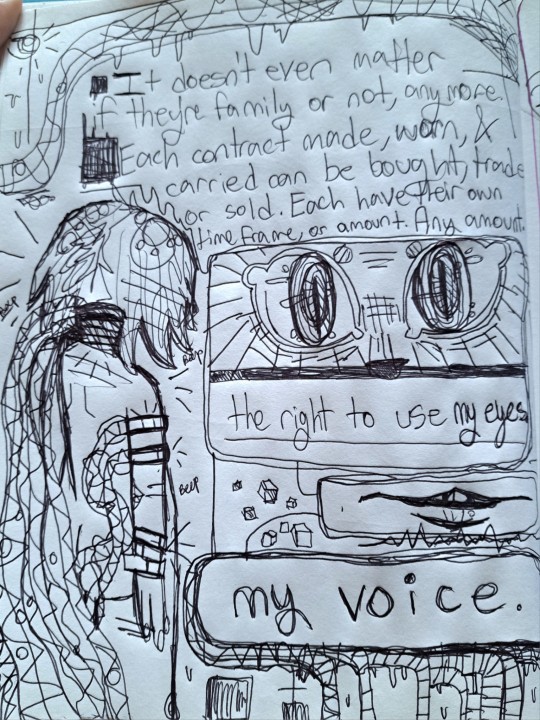 It doesn't even matter
if they're family or not, anymore.
Each contract made, worn, &
carried can be bought, trade
or sold. Each have their own
time frame, or amount. Any amount.
Beep
Beep
the right to use my eyes
Beep
my voice.